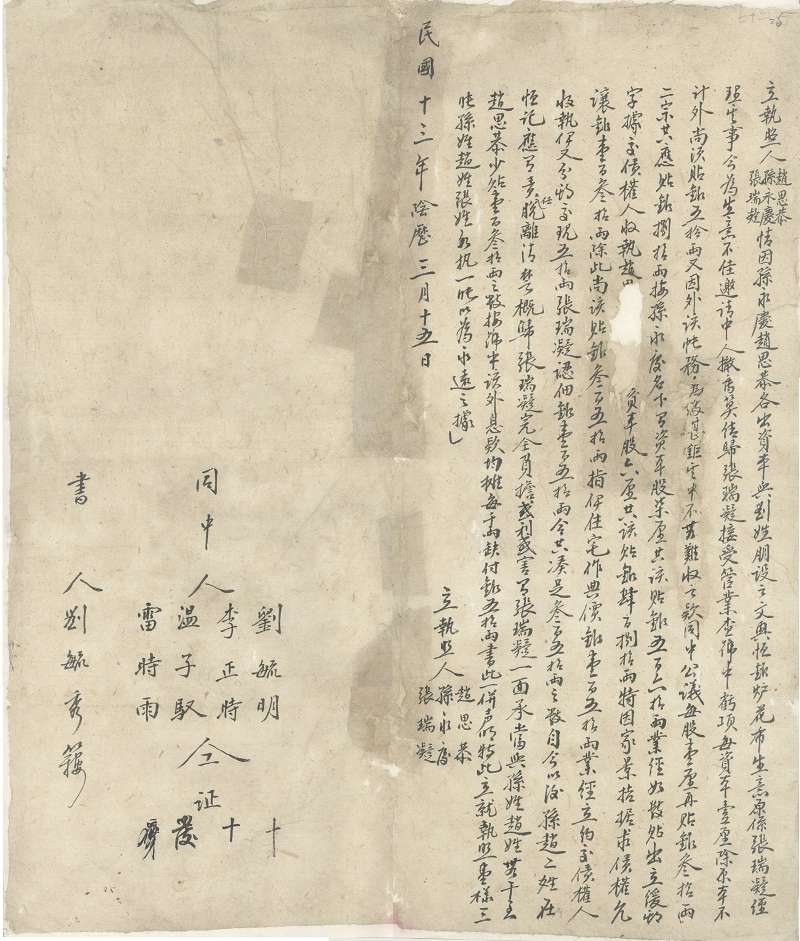 立執照人趙思恭孫永慶張瑞凝情因孫永慶趙思恭各出資本與劉姓朋設之文興恒銀炉花布生意原係張瑞凝經
理其事今為生意不佳邀請中人撤秀莫估歸張瑞凝接受管業查號中虧項每資本壹厘除原本不
計外尚須貼銀五拾兩又因外該帐務為数甚鉅其中不無難收之款同中公議每股壹厘再貼銀叁拾兩
二宗共應貼銀捌拾兩按孫永慶名下有資本股柒厘共該貼銀五百六拾兩業經如数貼出立
字據交債權人收執趙 資本股六厘共該貼銀肆百捌拾兩特因家景拮据求債權允
讓銀壹百叁拾兩除此尚該貼銀叁百五拾兩指伊住宅作典價銀壹百五拾兩業經立約交債權人
收執伊又另交現五拾兩張瑞凝認佃銀壹百五拾兩合共湊足叁百五拾兩之数自今以後孫趙二姓在
恒記應有責任脫離清楚概歸張瑞凝完全負擔或利或害有張瑞凝一面承當與孫姓趙姓無干至
趙思恭少貼壹百叁拾兩之数按號中該外息款均攤每千兩缺付銀五拾兩書此一併声明特此立就執照壹樣三
帋孫姓趙姓張姓各执一帋以為永遠之據
立執照人趙思恭孫永慶張瑞凝
民國十三年陰歷三月十五日
同中人
劉毓明
李正時
溫子馭
雷時雨
仝証
十
十
書人劉毓秀